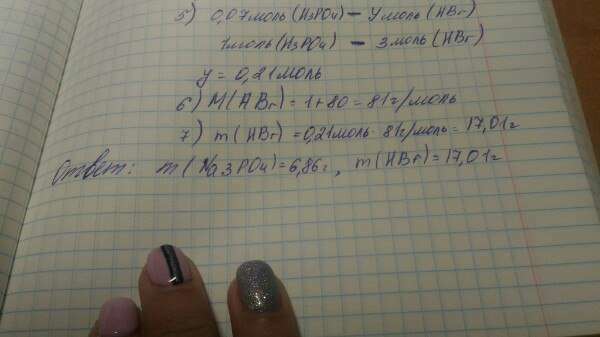 5) 0,07моль (H3PO4) – y моль (HBr)
1моль (H3PO4) – 3 моль (HBr)
y = 0,21моль
6) M(HBr) = 1+80 = 81г/моль
7) m(HBr) = 0,21моль · 81г/моль = 17,01г
Ответ: m(Na3PO4) = 6,86г, m(HBr) = 17,01г